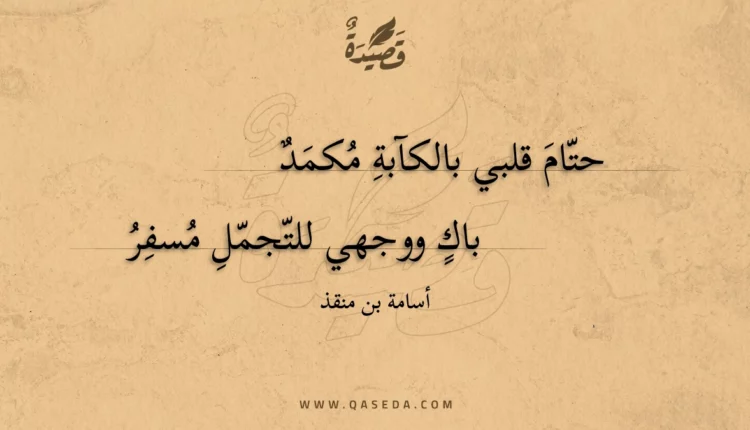 قَصِيْدَةٌ
حتّامَ قلبي بالكآبةِ مُكمَدٌ
باكٍ ووجهي للتّجمّلِ مُسفِرُ
أسامة بن منقذ
WWW.QASEDA.COM